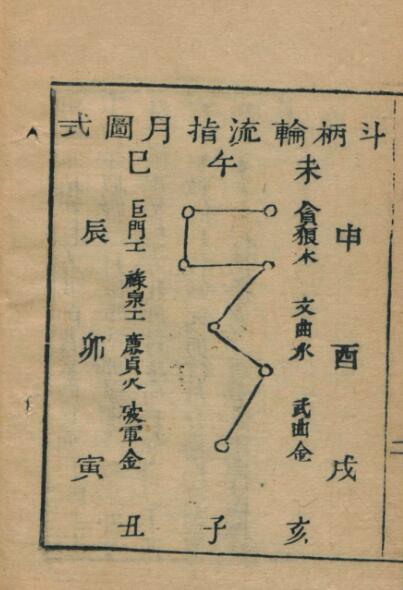 斗柄輪流指月圖式
未午巳
申酉戌
貪狼木 文曲水 武曲金
巨門土 祿存土 廉貞火 破軍金
辰卯寅
亥子丑